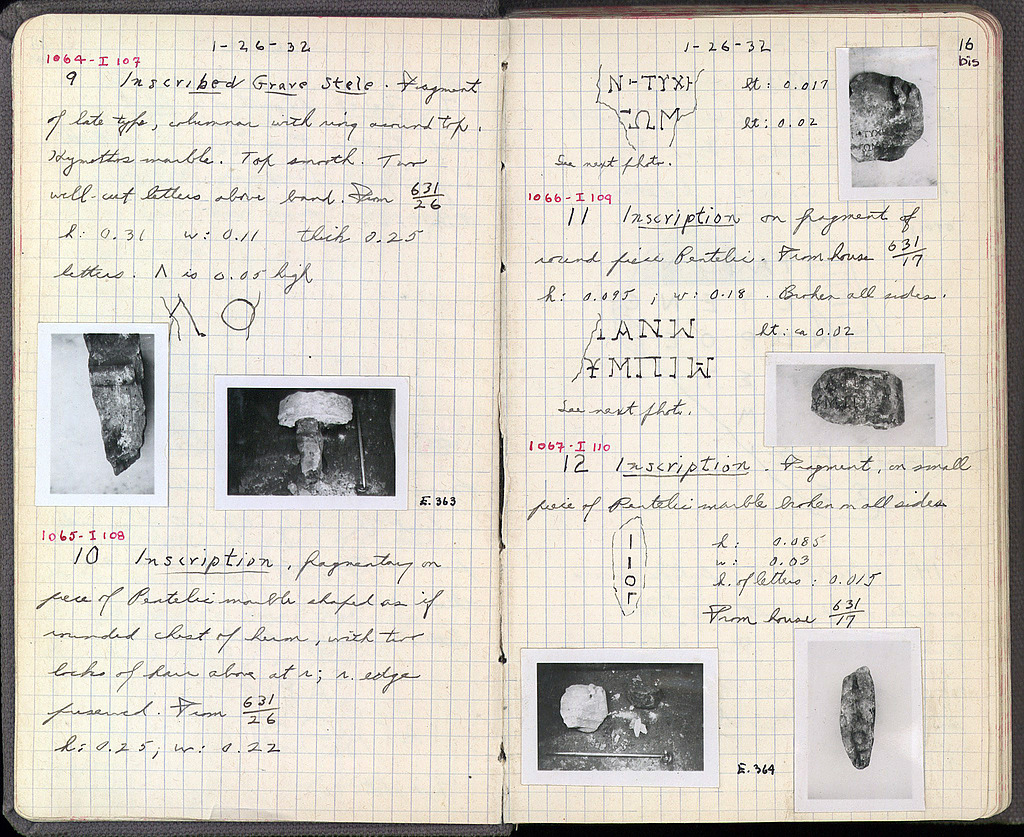 1-26-32
1064-I 107
9 Inscribed Grave Stele. Fragment
of late type, columnar with ring around top.
Hymettos marble. Top smooth. Two
well-cut letters above band. From 631/26
h: 0.31 w: 0.11 thick 0.25
letters. Λ is 0.05 high
Λ Ο
E.363
1065-I 108
10 Inscription, fragmentary on
piece of Pentelic marble shaped as if
rounded chest of herm, with two
locks of hair above at r; r. edge
preserved. From 631/26
h: 0.25; w: 0.22
1-26-32
16
bis
Ν⊢ΤΥΧΗ
ΙΩΜ
lt: 0.017
lt: 0.02
See next photo.
1066-I 109
11 Inscription on fragment of
round piece Pentelic. From house 631/17
h: 0.095; w: 0.18. Broken all sides.
ΙΑΝW
lt: ca 0.02
See next photo.
1067-I 110
12 Inscription. Fragment, on small
piece of Pentelic marble broken on all sides
h: 0.085
w: 0.03
h. of letters: 0.015
From house 631/17
E.364